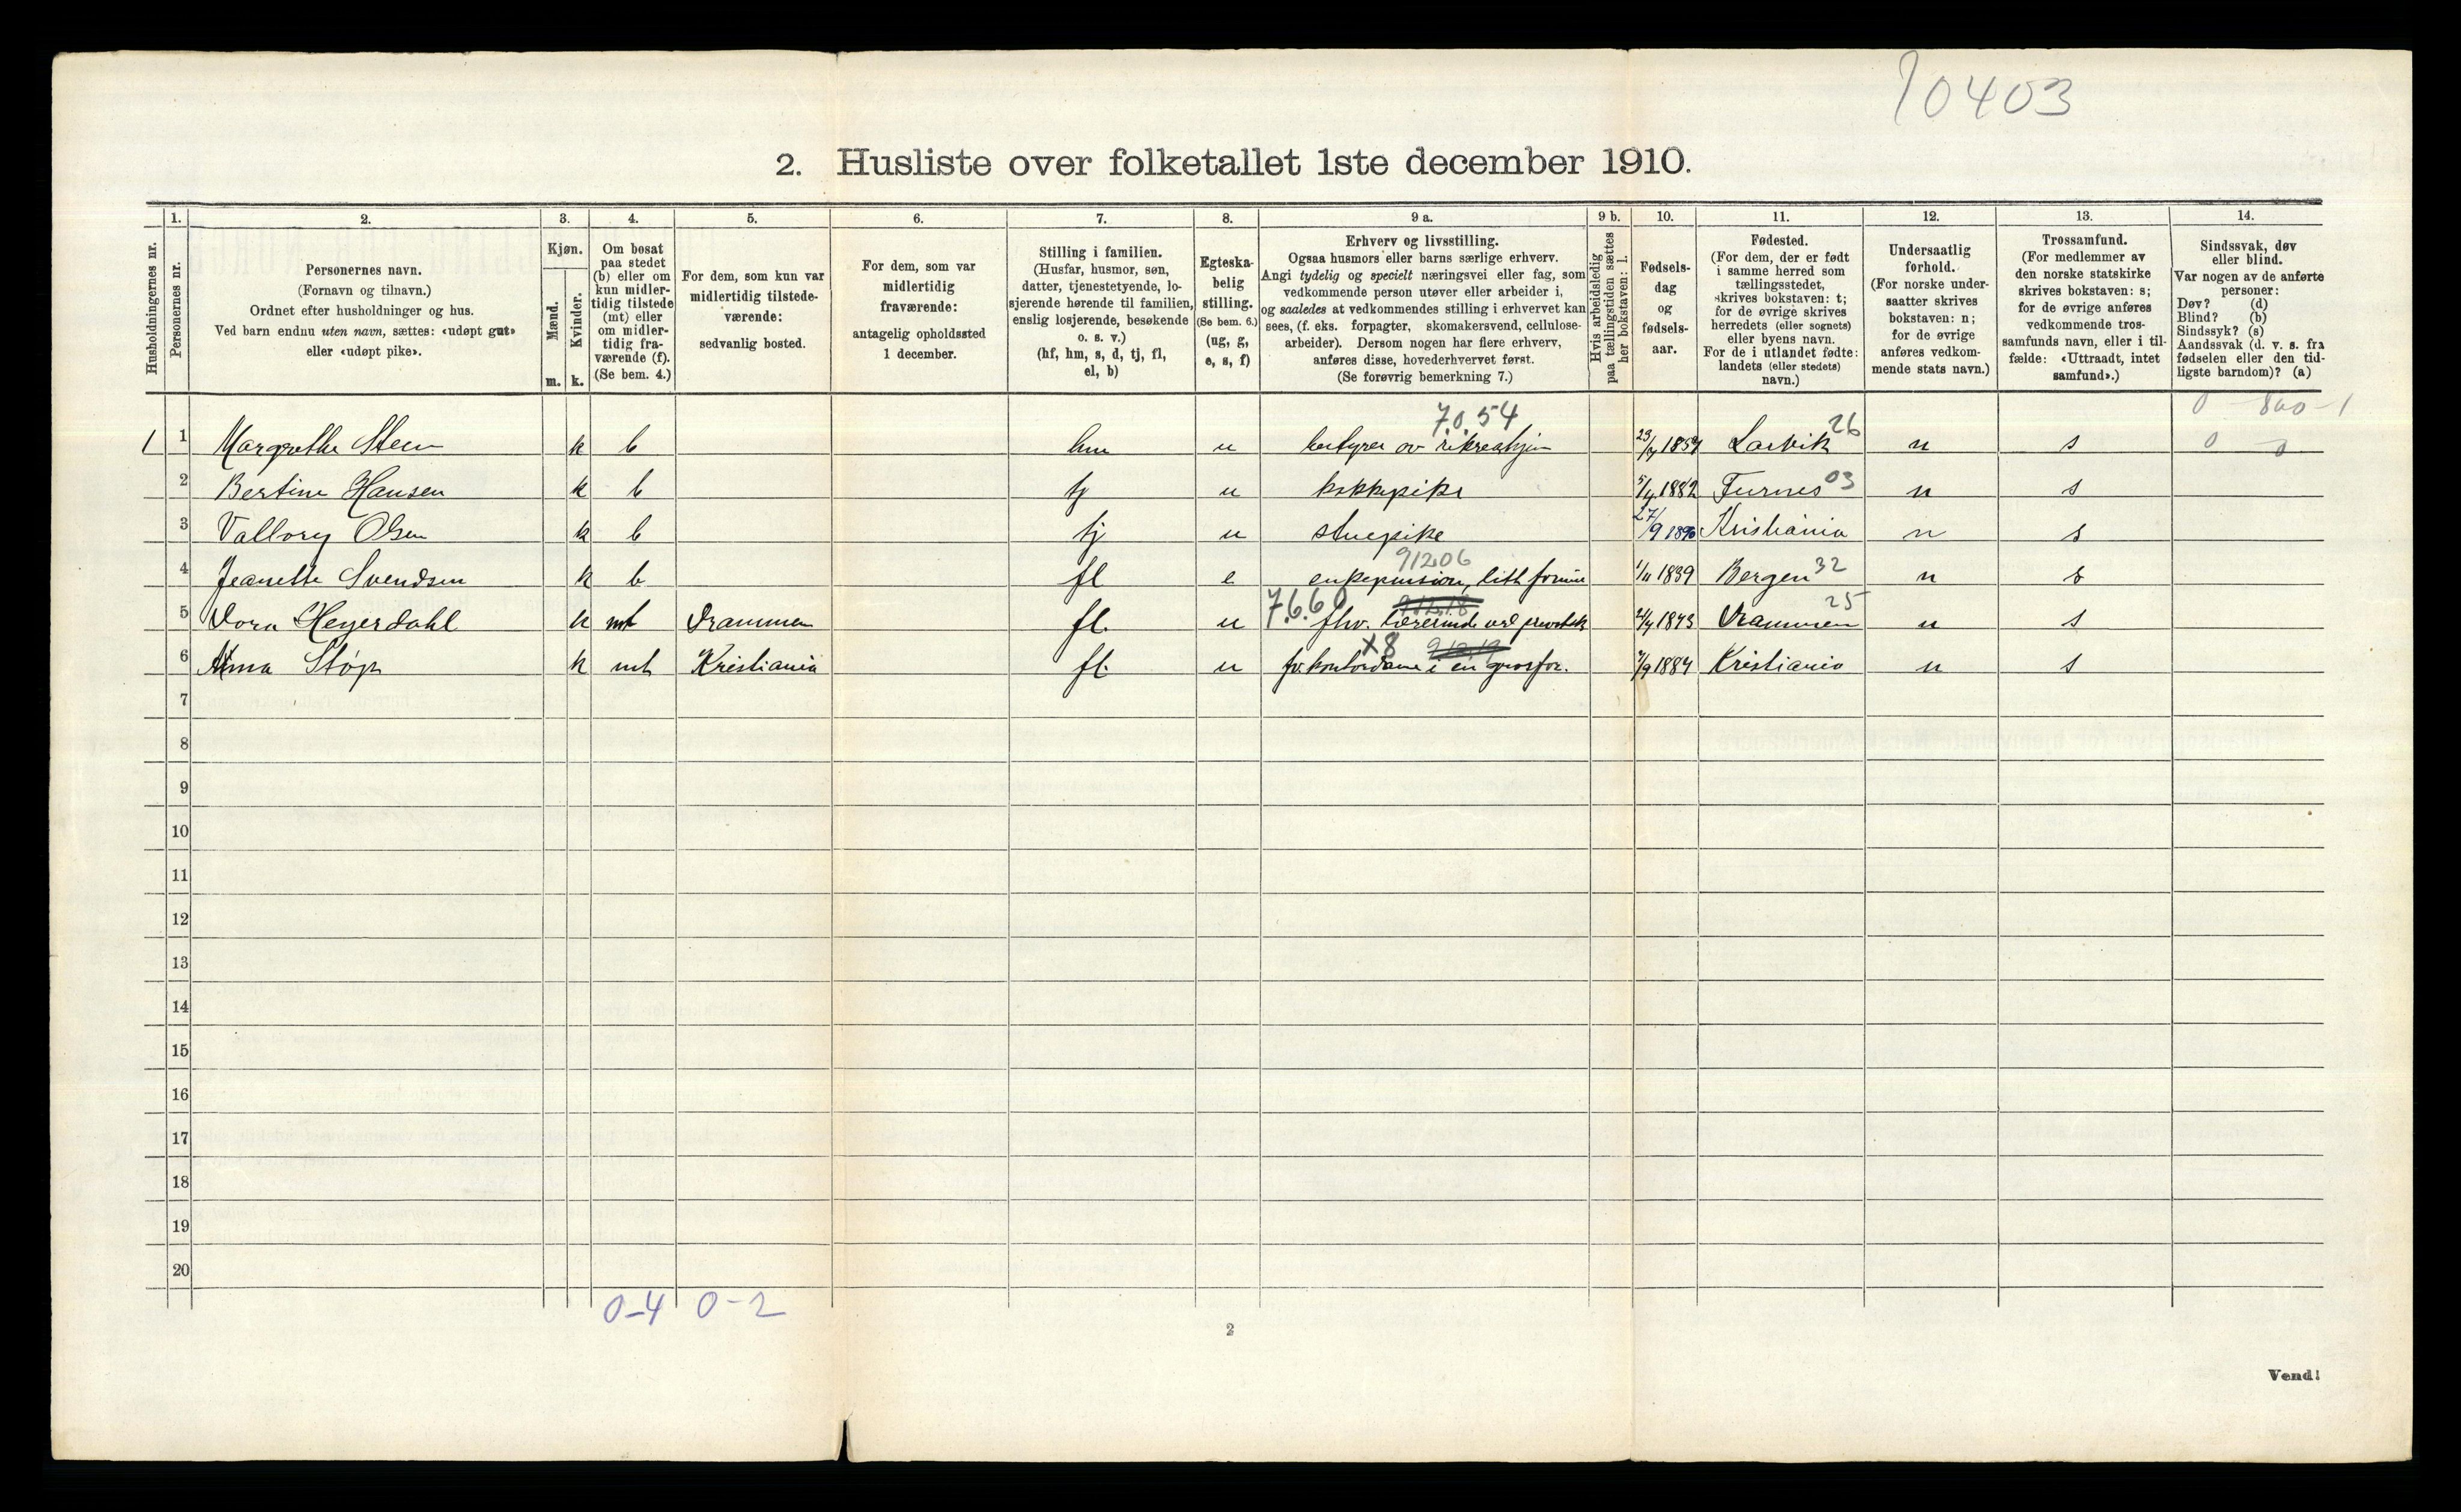 10403
2. Husliste over folketallet 1ste december 1910.
Husholdningernes nr.
1.
Personernes nr.
2.
Personernes navn.
(Fornavn og tilnavn.)
Ordnet efter husholdninger og hus.
Ved barn endnu uten navn, sættes: «udøpt gut»
eller «udøpt pike».
3.
Kjøn.
Mænd.
Kvinder.
m. k.
4.
Om bosat
paa stedet
(b) eller om
kun midler-
tidig tilstede
(mt) eller
om midler-
tidig fra-
værende (f).
(Se bem. 4.)
5.
For dem, som kun var
midlertidig tilstede-
værende:
sedvanlig bosted.
6.
For dem, som var
midlertidig
fraværende:
antagelig opholdssted
1 december.
7.
Stilling i familien.
(Husfar, husmor, søn,
datter, tjenestetyende, lo-
sjerende hørende til familien,
enslig losjerende, besøkende
o. s. v.)
(hf, hm, s, d, tj, fl,
el, b)
8.
Egteska-
belig
stilling.
(Se bem. 6.)
(ug, g,
e, s, f)
9 a.
Erhverv og livsstilling.
Ogsaa husmors eller barns særlige erhverv.
Angi tydelig og specielt næringsvei eller fag, som
vedkommende person utøver eller arbeider i,
og saaledes at vedkommendes stilling i erhvervet kan
sees, (f. eks. forpagter, skomakersvend, cellulose-
arbeider). Dersom nogen har flere erhverv,
anføres disse, hovederhvervet først.
(Se forøvrig bemerkning 7.)
9 b.
Hvis arbeidsledig
paa tællingstiden sættes
her bokstaven: l.
10.
Fødsels-
dag
og
fødsels-
aar.
11.
Fødested.
(For dem, der er født
i samme herred som
tællingsstedet,
skrives bokstaven: t;
for de øvrige skrives
herredets (eller sognets)
eller byens navn.
For de i utlandet fødte:
landets (eller stedets)
navn.)
12.
Undersaatlig
forhold.
(For norske under-
saatter skrives
bokstaven: n;
for de øvrige
anføres vedkom-
mende stats navn.)
13.
Trossamfund.
(For medlemmer av
den norske statskirke
skrives bokstaven: s;
for de øvrige anføres
vedkommende tros-
samfunds navn, eller i til-
fælde: «Uttraadt, intet
samfund».)
14.
Sindssvak, døv
eller blind.
Var nogen av de anførte
personer:
Døv? (d)
Blind? (b)
Sindssyk? (s)
Aandssvak (d. v. s. fra
fødselen eller den tid-
ligste barndom)? (a)
7.0.54 26
1 1 Margrethe Steen k b hm u bestyrer av rekreashjem Larvik n s 0 0
2 Bertine Hansen k b tj u kokkepike 1882 Furnes 03 n s
3 Valborg Olsen k b tj u stuepike 27/9 1890 Kristiania n s
91206
4 Jeanette Svendsen k b fl e enkepension, litt formue 1839 Bergen 32 n s
7.6.60 25
5 Dora Heyerdahl k mt Drammen fl. u fhv. lærerinde 1843 Drammen n s
x8
6 Anna Støp k mt Kristiania fl. u fv. kontordame i en grosfor. 1884 Kristiania n s
7
8
9
10
11
12
13
14
15
16
17
18
19
20
0-4 0-2
2
Vend!